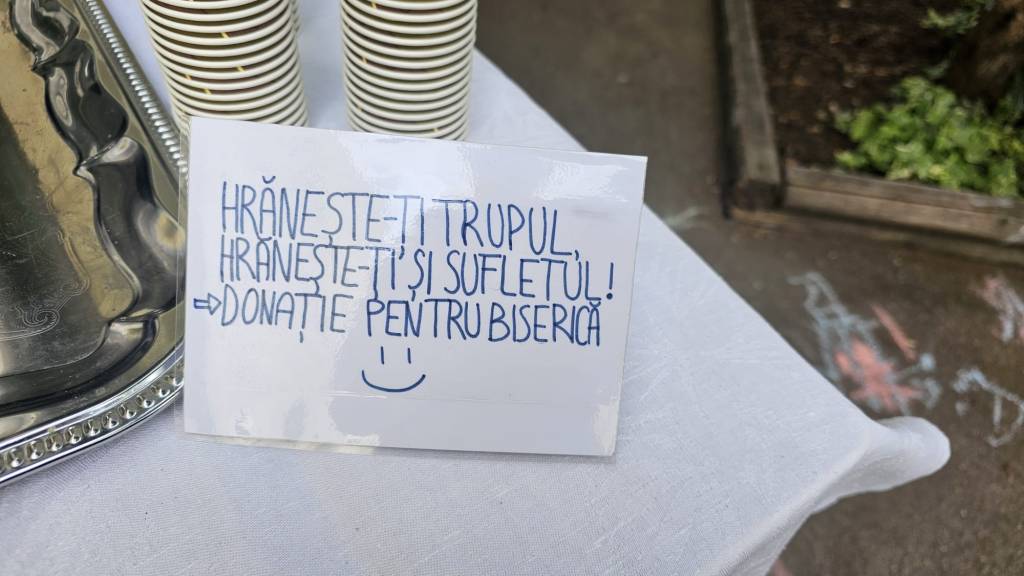 HRĂNEȘTE-ȚI TRUPUL,
HRĂNEȘTE-ȚI ȘI SUFLETUL!
⇨DONAȚIE PENTRU BISERICĂ